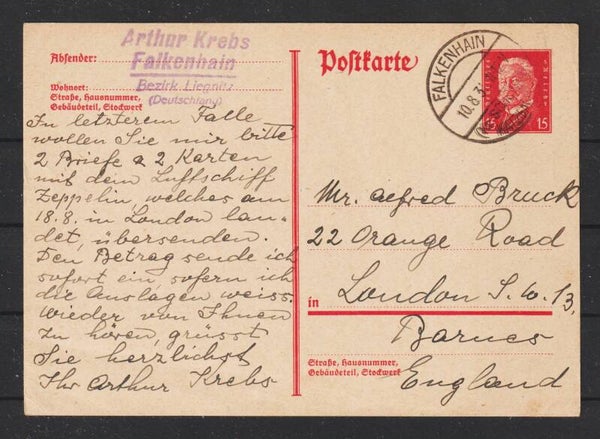 Absender:
Arthur Krebs
Falkenhain
Bezirk Liegnitz
(Deutschland)
Wohnort:
Straße, Hausnummer,
Gebäudeteil, Stockwerk
In letzterem Falle
wollen Sie mir bitte
2 Briefe & 2 Karten
mit dem Luftschiff
Zeppelin, welches am
18.8. in London lan-
det, übersenden.
Den Betrag sende ich
sofort ein sofern ich
die Auslagen weiss.
Wieder von Ihnen
zu hören, grüsst
Sie herzlichst
Ihr Arthur Krebs
Postkarte
FALKENHAIN
10.8.3
15
15
Mr. Alfred Bruck
22 Orange Road
in London S.W. 13,
Barnes
England
Straße, Hausnummer,
Gebäudeteil, Stockwerk